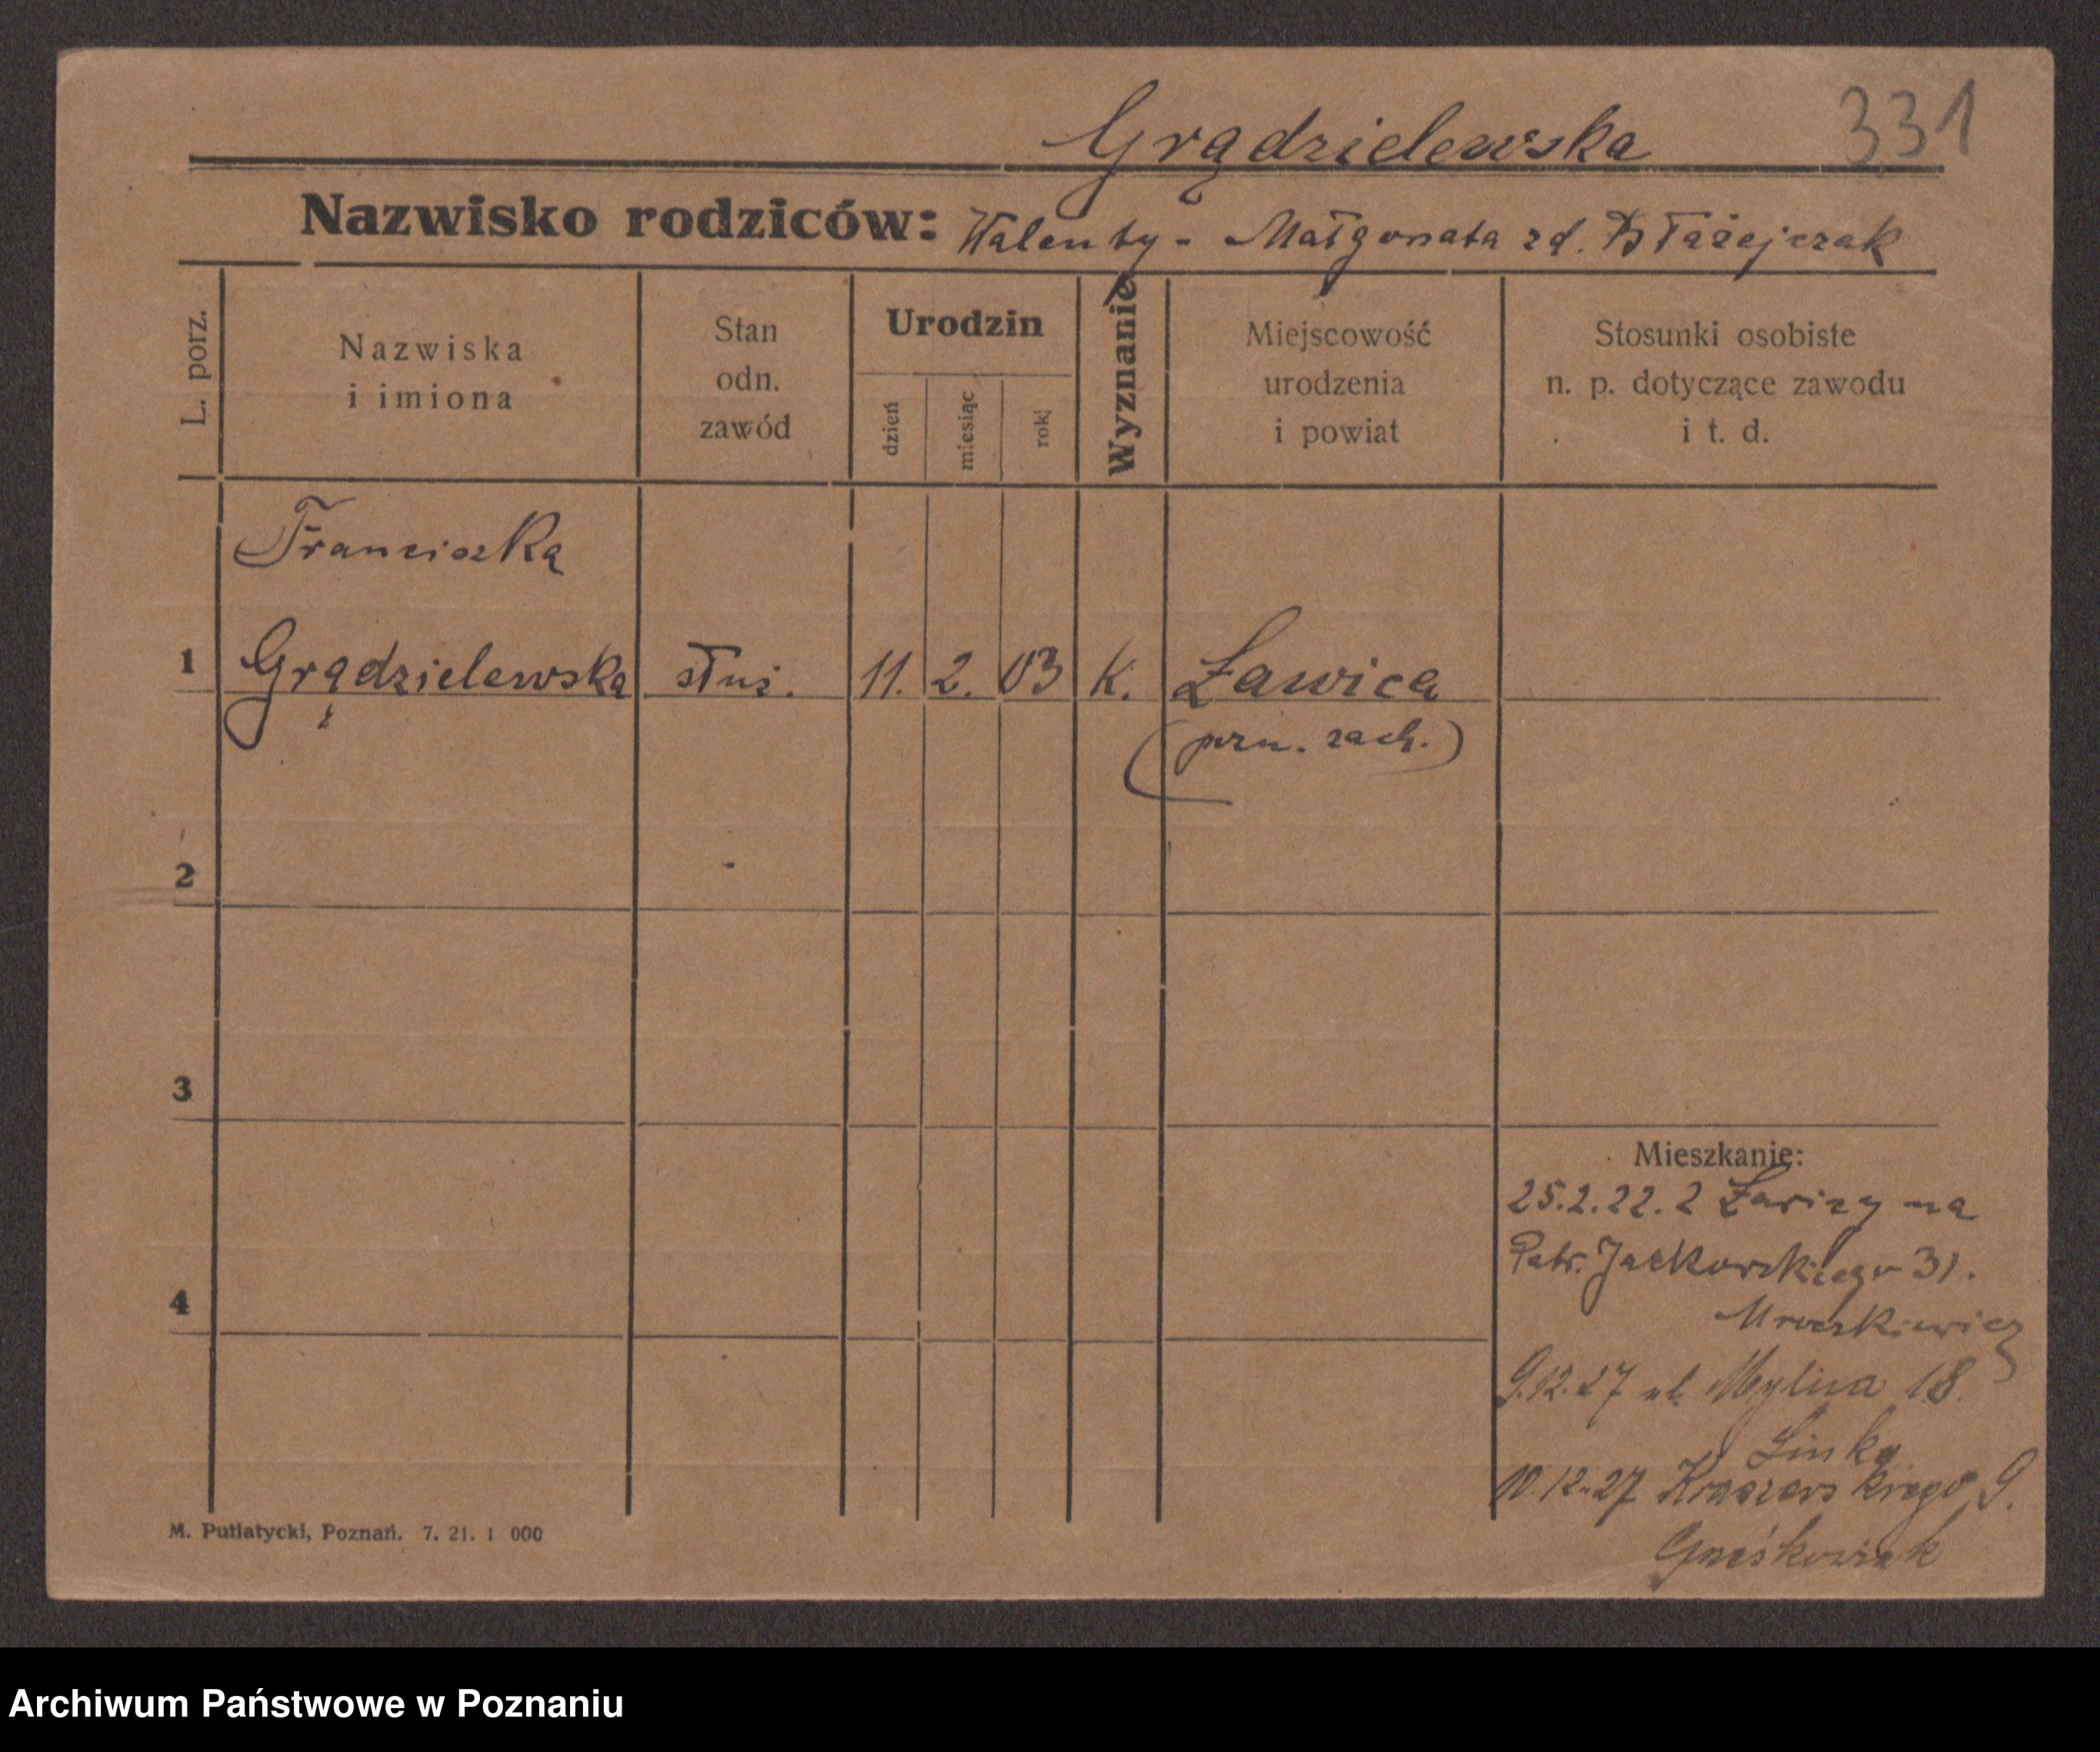 Grądzielewska 331
Nazwisko rodziców: Walenty - Małgorzata zd. Błażejczak
L. porz.
Nazwiska
i imiona
Stan
odn.
zawód
Urodzin
dzień
miesiąc
rok
Wyznanie
Miejscowość
urodzenia
i powiat
Stosunki osobiste
n. p. dotyczące zawodu
i t. d.
Franciszka
1 Grądzielewska służ. 11. 2. 03 K. Ławica
(pzn. zach.)
2
3
4
Mieszkanie:
25.2.22. z Ławicy na
Patr. Jackowskiego 31.
Mroczkiewicz
9.12.27 ul. Mylna 18.
Linke
10.12.27 Kraszewskiego 9.
Grześkowiak
M. Putiatycki, Poznań. 7. 21. 1 000
Archiwum Państwowe w Poznaniu